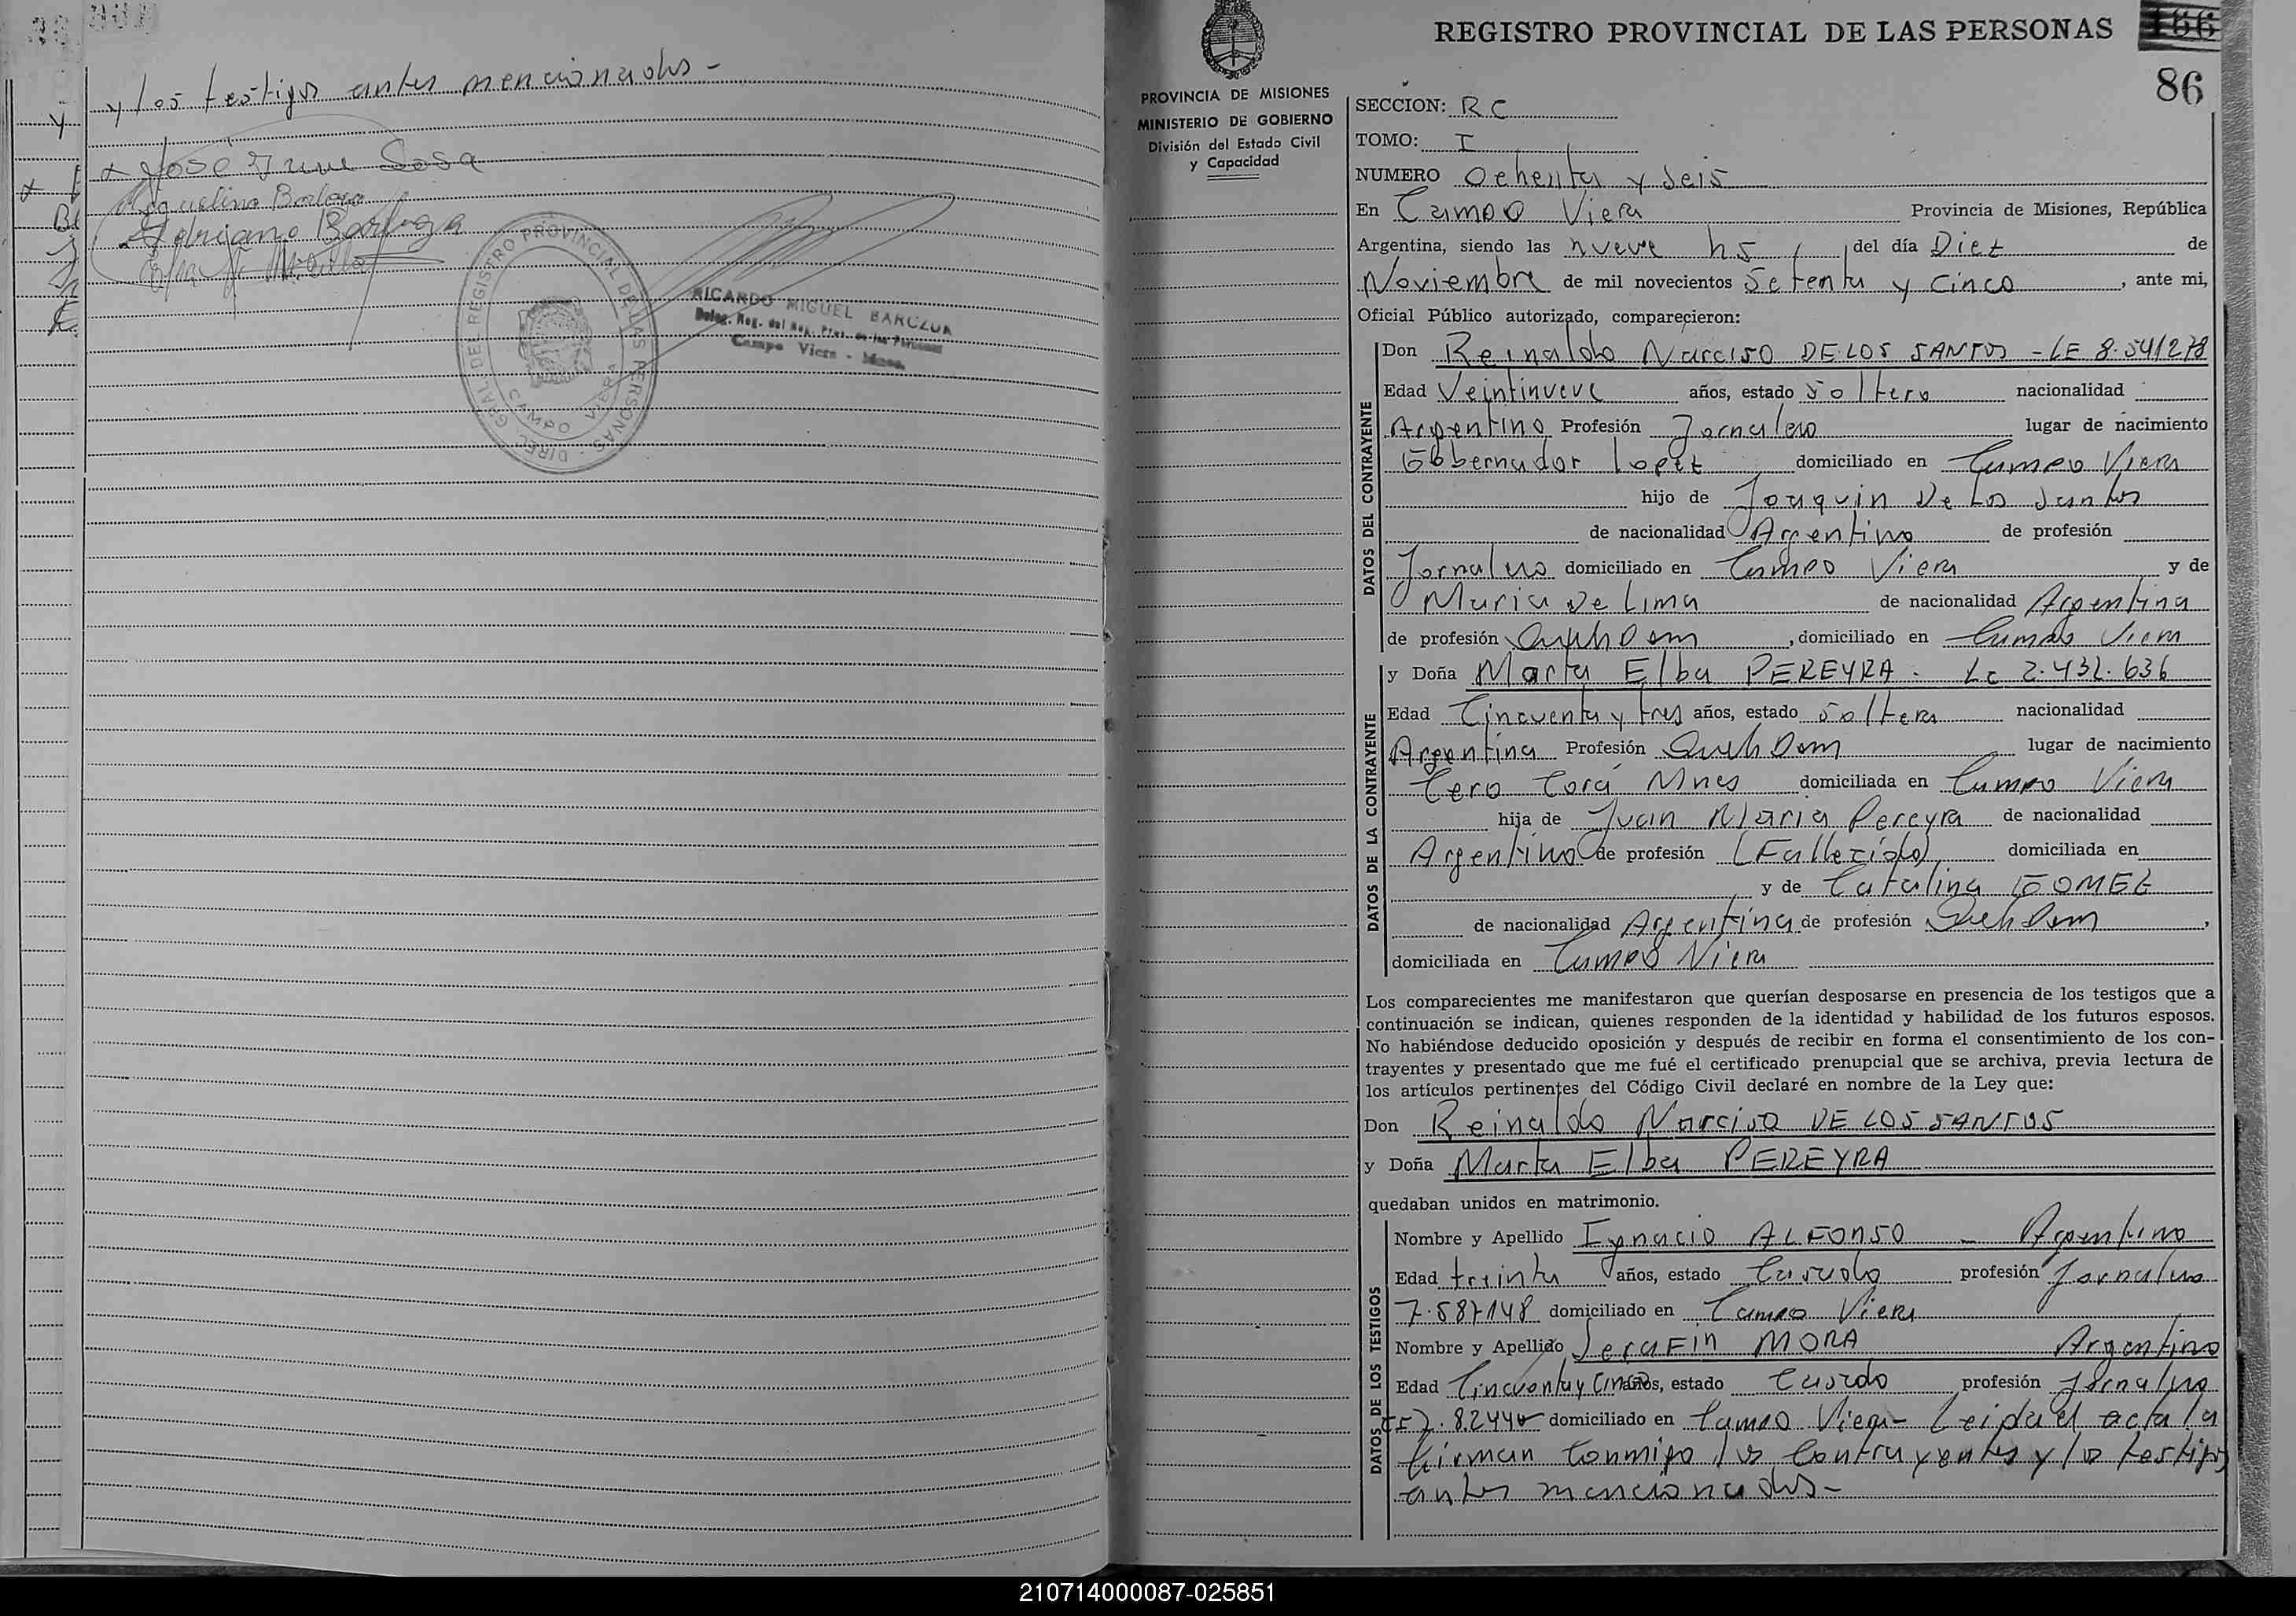 y los testigos antes mencionados -
y
x José Sosa
Barboza
Adriano Barboza
DIREC. GRAL. DEL REGISTRO PROVINCIAL DE LAS PERSONAS
CAMPO VIERA
RICARDO MIGUEL BARCZUK
Deleg. Reg. del Reg. Prov. de las Personas
Campo Viera - Mnes.
REGISTRO PROVINCIAL DE LAS PERSONAS
166
86
PROVINCIA DE MISIONES
MINISTERIO DE GOBIERNO
División del Estado Civil
y Capacidad
SECCION: RC
TOMO: I
NUMERO Ochenta y Seis
En Campo Viera Provincia de Misiones, República
Argentina, siendo las nueve hs, del día Diez de
Noviembre de mil novecientos Setenta y Cinco, ante mi,
Oficial Público autorizado, comparecieron:
DATOS DEL CONTRAYENTE
Don Reinaldo Narciso DE LOS SANTOS - LE 8.541278
Edad Veintinueve años, estado Soltero nacionalidad
Argentino Profesión Jornalero lugar de nacimiento
Gobernador Lopez domiciliado en Campo Viera
hijo de Joaquin De Los Santos
de nacionalidad Argentino de profesión
Jornalero domiciliado en Campo Viera y de
Maria De Lima de nacionalidad Argentina
de profesión Queh Dom, domiciliado en Campo Viera
DATOS DE LA CONTRAYENTE
y Doña Marta Elba PEREYRA. Lc 2.432.636
Edad Cincuenta y tres años, estado Soltera nacionalidad
Argentina Profesión Queh Dom lugar de nacimiento
Cero Corá Mnes domiciliada en Campo Viera
hija de Juan Maria Pereyra de nacionalidad
Argentino de profesión (Fallecido) domiciliada en
y de Catalina GOMEZ
de nacionalidad Argentina de profesión Queh Dom,
domiciliada en Campo Viera
Los comparecientes me manifestaron que querían desposarse en presencia de los testigos que a
continuación se indican, quienes responden de la identidad y habilidad de los futuros esposos.
No habiéndose deducido oposición y después de recibir en forma el consentimiento de los con-
trayentes y presentado que me fué el certificado prenupcial que se archiva, previa lectura de
los artículos pertinentes del Código Civil declaré en nombre de la Ley que:
Don Reinaldo Narciso DE LOS SANTOS
y Doña Marta Elba PEREYRA
quedaban unidos en matrimonio.
DATOS DE LOS TESTIGOS
Nombre y Apellido Ignacio ALFONSO - Argentino
Edad treinta años, estado Casado profesión Jornalero
7.587148 domiciliado en Campo Viera
Nombre y Apellido Serafin MORA Argentino
Edad Cincuenta y Cinco años, estado Casado profesión Jornalero
domiciliado en Campo Viera - Leida el acta la
firman Conmigo los Contrayentes y los testigos
antes mencionados -
210714000087-025851